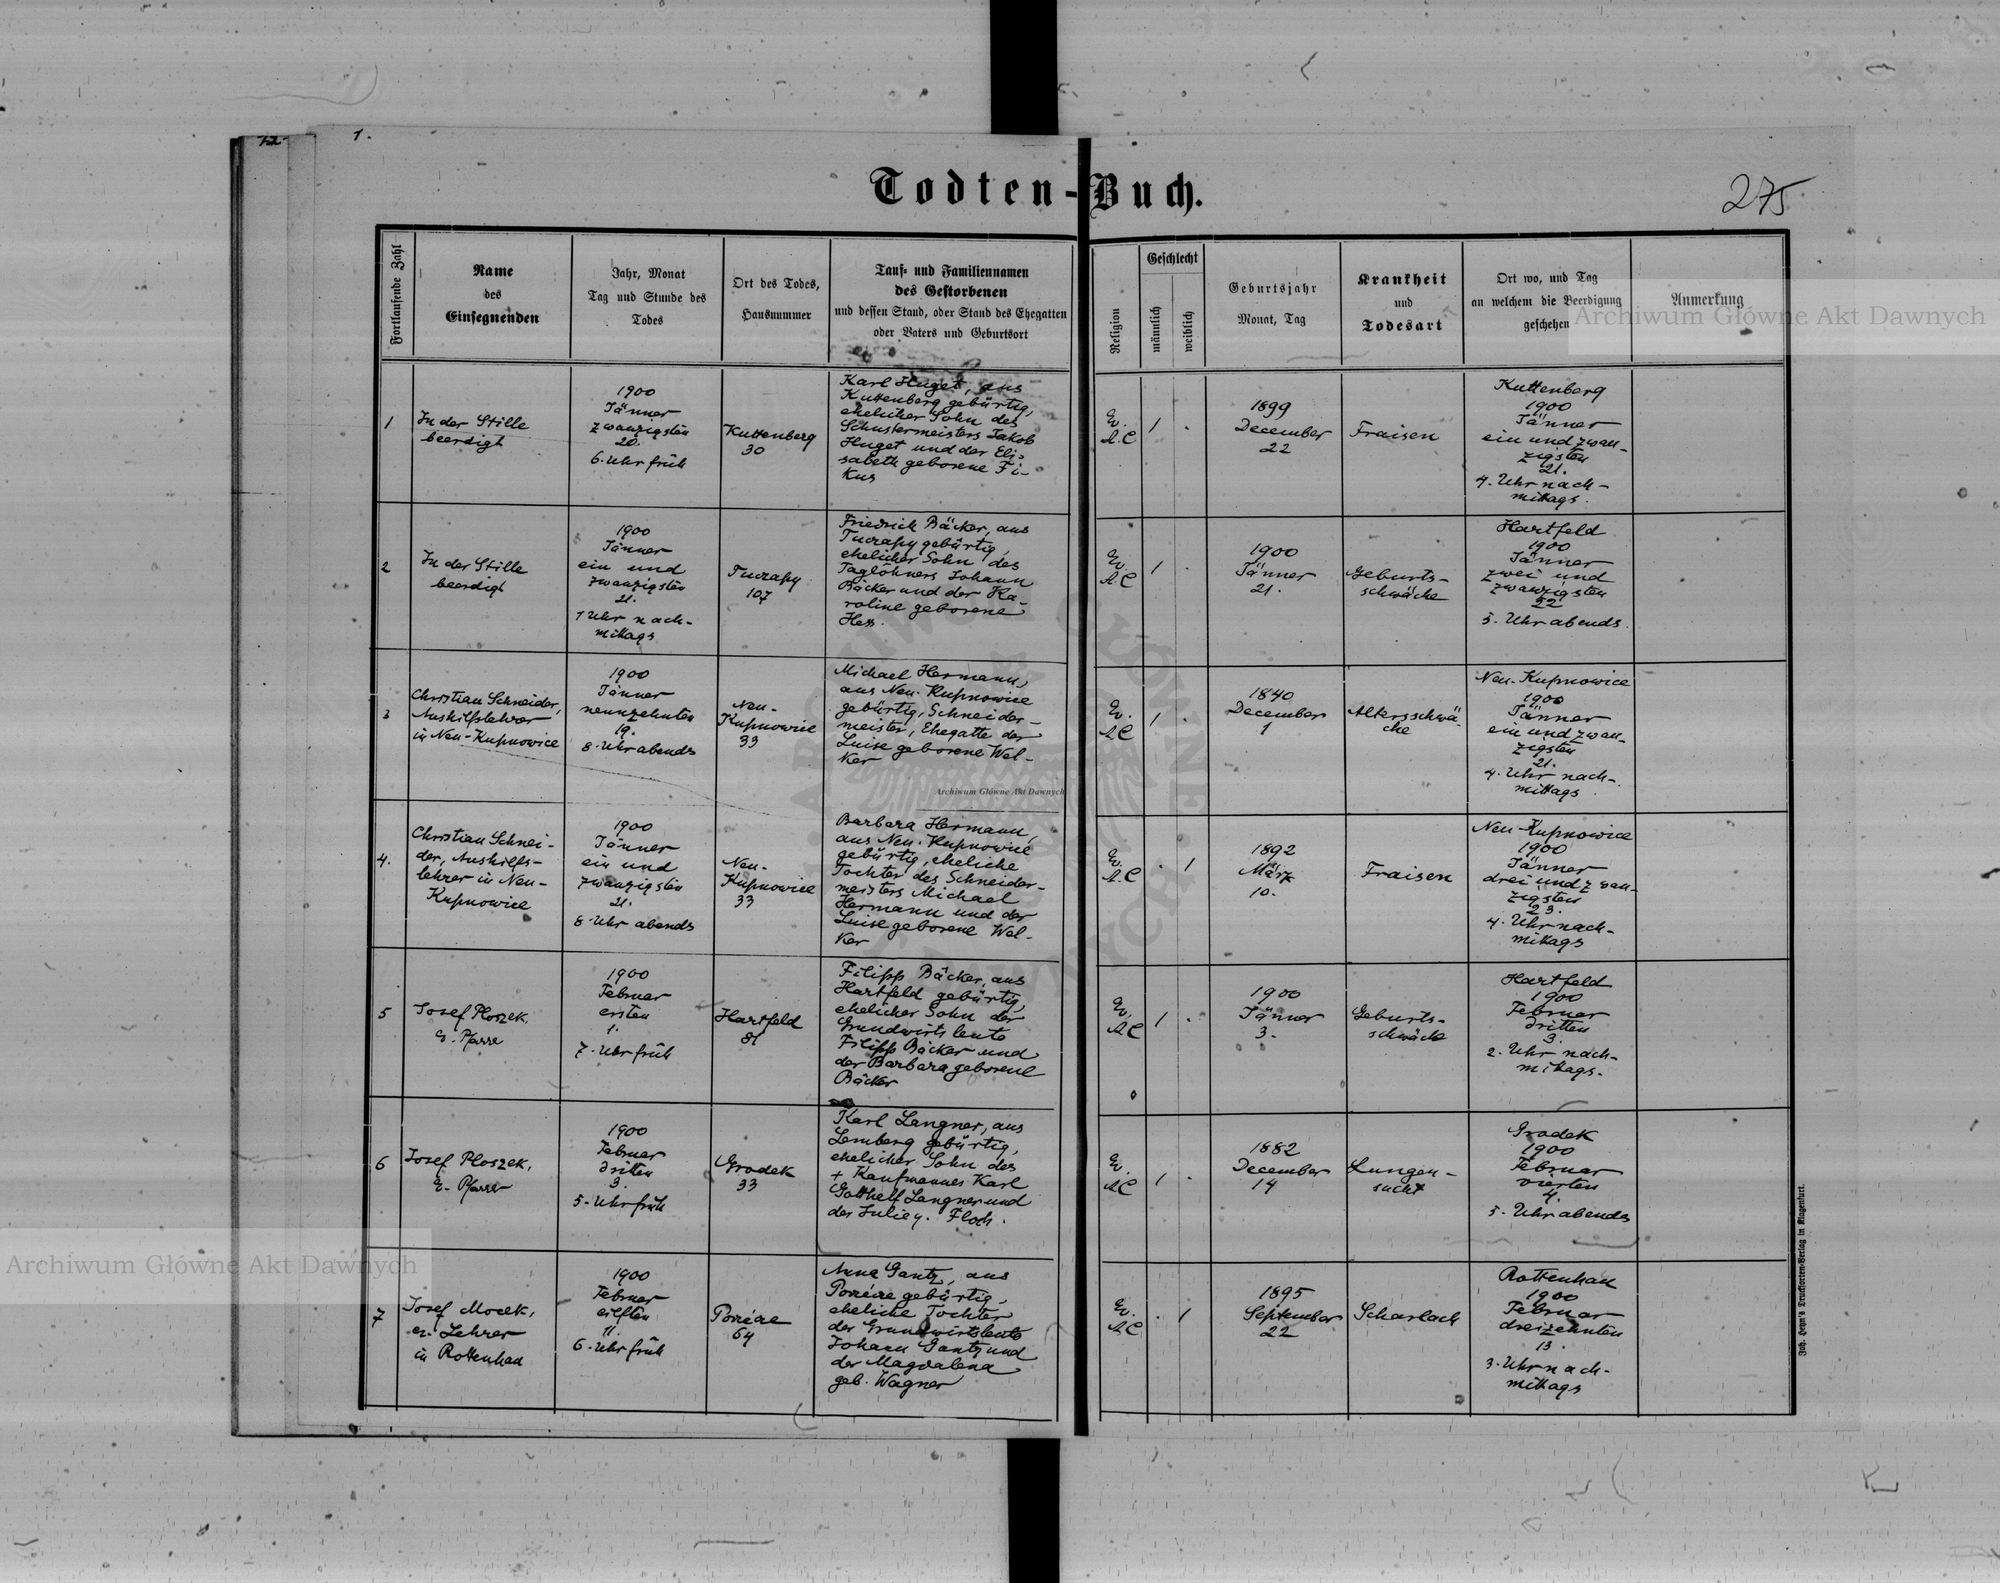 12
1.
Todten-Buch.
275
Fortlaufende Zahl
Name
des
Einsegnenden
Jahr, Monat
Tag und Stunde des
Todes
Ort des Todes,
Hausnummer
Tauf- und Familiennamen
des Gestorbenen
und dessen Stand, oder Stand des Ehegatten
oder Vaters und Geburtsort
Religion
Geschlecht
männlich
weiblich
Geburtsjahr
Monat, Tag
Krankheit
und
Todesart
Ort wo, und Tag
an welchem die Beerdigung
geschehen
Anmerkung
1
In der Stille
beerdigt
1900
Jänner
zwanzigsten
20.
6. Uhr früh
Kuttenberg
30
Karl Huget, aus
Kuttenberg gebürtig,
ehelicher Sohn des
Schustermeisters Jakob
Huget und der Eli-
sabeth geborene Fi-
kus
Ev.
A.C
1
.
1899
December
22
Fraisen
Kuttenberg
1900
Jänner
ein und zwan-
zigsten
21.
4. Uhr nach-
mittags.
2
In der Stille
beerdigt
1900
Jänner
ein und
zwanzigsten
21.
1 Uhr nach-
mittags
Tuczapy
107
Friedrich Bäcker, aus
Tuczapy gebürtig,
ehelicher Sohn des
Taglöhners Johann
Bäcker und der Ka-
roline geborene
Hess.
Ev.
AC
1
.
1900
Jänner
21.
Geburts-
schwäche
Hartfeld
1900
Jänner
zwei und
zwanzigsten
22
5. Uhr abends.
3
Christian Schneider,
Aushilfslehrer
in Neu-Kupnowice
1900
Jänner
neunzehnten
19.
8. Uhr abends
Neu-
Kupnowice
33
Michael Hermann,
aus Neu-Kupnowice
gebürtig, Schneider-
meister, Ehegatte der
Luise geborene Wel-
ker
Ev.
AC
1
.
1840
December
1
Altersschwä-
che
Neu-Kupnowice
1900
Jänner
ein und zwan-
zigsten
21.
4. Uhr nach-
mittags
4.
Christian Schnei-
der, Aushilfs-
lehrer in Neu-
Kupnowice
1900
Jänner
ein und
zwanzigsten
21.
8. Uhr abends
Neu-
Kupnowice
33
Barbara Hermann,
aus Neu-Kupnowice
gebürtig, eheliche
Tochter des Schneider-
meisters Michael
Hermann und der
Luise geborene Wel-
ker
Ev.
A.C
.
1
1892
März
10.
Fraisen
Neu-Kupnowice
1900
Jänner
drei und zwan-
zigsten
23.
4. Uhr nach-
mittags
5
Josef Ploszek,
ev. Pfarrer
1900
Februar
ersten
1.
7. Uhr früh
Hartfeld
81
Filipp Bäcker, aus
Hartfeld gebürtig,
ehelicher Sohn der
Grundwirtsleute
Filipp Bäcker und
der Barbara geborene
Bäcker
Ev.
AC
1
.
1900
Jänner
3.
Geburts-
schwäche
Hartfeld
1900
Februar
dritten
3.
2. Uhr nach-
mittags.
6
Josef Ploszek,
ev. Pfarrer
1900
Februar
dritten
3.
5. Uhr früh
Grodek
33
Karl Langner, aus
Lemberg gebürtig,
ehelicher Sohn des
+ Kaufmannes Karl
Gotthelf Langner und
der Julie g. Floh.
Ev.
AC
1
.
1882
December
14
Lungen-
sucht
Grodek
1900
Februar
vierten
4.
5. Uhr abends
7
Josef Mocek,
ev. Lehrer
in Rottenhan
1900
Februar
eilften
11.
6. Uhr früh
Porzecze
64
Anna Gantz, aus
Porzecze gebürtig,
eheliche Tochter
der Grundwirtsleute
Johann Gantz und
der Magdalena
geb. Wagner
Ev.
AC
.
1
1895
September
22
Scharlach
Rottenhan
1900
Februar
dreizehnten
13.
3. Uhr nach-
mittags
Joh. Heyn's Drucksorten-Verlag in Klagenfurt.
Archiwum Główne Akt Dawnych
Archiwum Główne Akt Dawnych
Archiwum Główne Akt Dawnych
ARCHIWUM GŁÓWNE AKT DAWNYCH